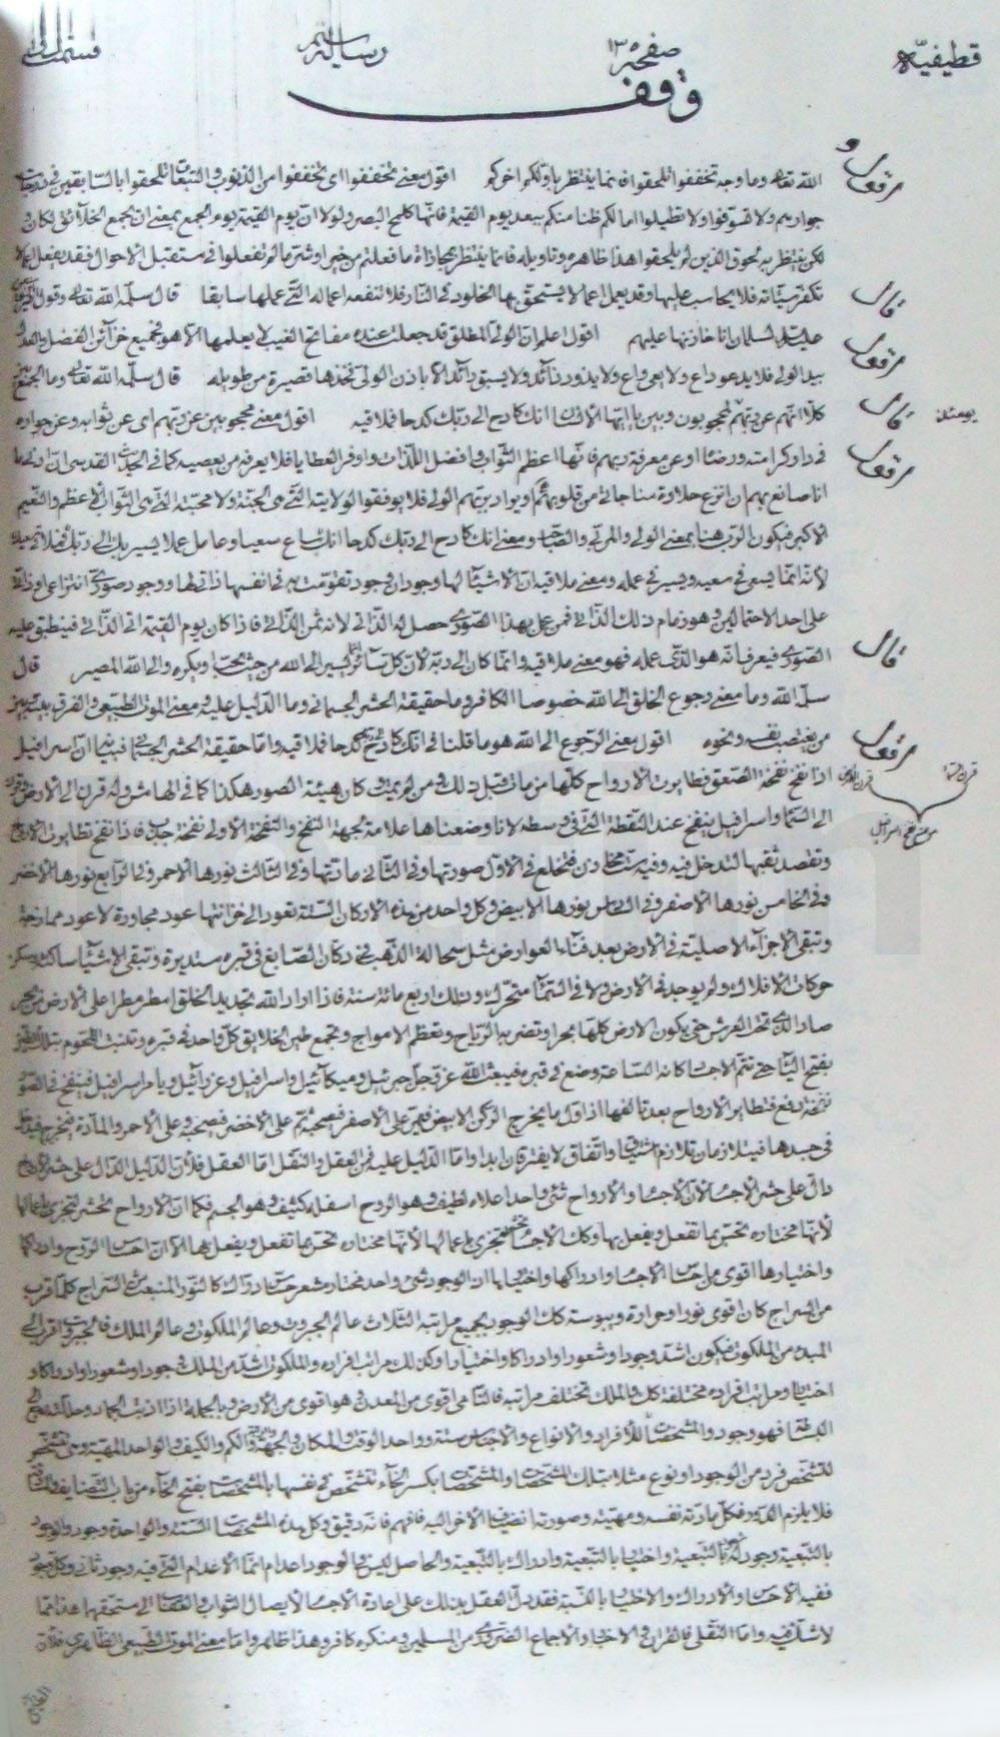 قطيفيّه صفحه ١٣ رسالة
وقف
الله تعالى وما وجه تخففوا تلحقوا فانما ينتظر باولكم اخركم اقول معنى تخففوا اى تخففوا من الذنوب والتبعات تلحقوا بالسابقين فى درجات
جوارهم ولا تسوّفوا ولا تطيلوا امالكم ظنا منكم ببعد يوم القيمة فانها كلمح البصر ولولا ان يوم القيمة يوم الجمع بمعنى ان يجمع الخلائق لكان
لكن ينتظر به لحوق الذين لم يلحقوا هذا ظاهره وتاويله فانما ينتظر بمجازاة ما فعلتم من خير او شر ما لم تفعلوا فى مستقبل الاحوال فقد يفعل
تكفر سيئاته فلا يحاسب عليها وقد يعمل اعمالا يستحق بها الخلود فى النار فلا تنفعه اعماله التى عملها سابقا قال سلمه الله تعالى وقول
لسلمان انا خازنها عليهم اقول اعلم ان الولى المطلق قد جعلت عنده مفاتح الغيب لا يعلمها الا هو فجميع خزائن الفضل والعدل
بيد الولى فلا يدعو داع ولا يعى واع ولا يذود ذائد ولا يسبق رائد الا باذن الولى تخذها قصيرة من طويله قال سلمه الله تعالى وما الجمع بين
كلا انهم عن ربهم لمحجوبون وبين يا ايها الانسان انك كادح الى ربك كدحا فملاقيه اقول معنى محجوبين عن ربهم اى عن ثوابه وعن جواره
يومئذ
فى دار كرامته ورضاه او عن معرفة ربهم فانها اعظم الثواب وافضل اللذات واوفر العطايا فلا يعرفه من يعصيه كما فى الحديث القدسى ان ادنى ما
انا صانع بهم ان انزع حلاوة مناجاتى من قلوبهم او يراد بربهم الولى فلا يوفقوا لولايته التى هى الجنة ولا محبته التى هى الثواب الاعظم والنعيم
الاكبر فيكون الرب هنا بمعنى الولى والمربى والصاحب ومعنى انك كادح الى ربك كدحا انك ساع سعيا وعامل عملا يسير بك الى ربك فملاقى
لانه انما يسعى فى سعيه ويسير فى عمله ومعنى ملاقيه ان الاشياء لها وجودان وجود تقومت به فى انفسها ذاتى لها ووجود صورى انتزاعى او ذاتى
على احد الاحتمالين وهو زمام ذلك الذاتى فمن عمل بهذا الصورى حصل له الذاتى لانه ثمن الذاتى فاذا كان يوم القيمة اتى الذاتى فينطبق عليه
الصورى فيعرف انه هو الذى عمله فهو معنى ملاقيه وانما كان الى ربه لان كل سائر يسير الى الله من حيث يحب او يكره والى الله المصير قال
سلمه الله وما معنى رجوع الخلق الى الله خصوصا الكافر وما حقيقة الحشر الجسمانى وما الدليل عليه ومعنى الموت الطبيعى والفرق بينه وبين
من يغتصب نفسه ونحوه اقول معنى الرجوع الى الله هو ما قلنا فى انك كادح كدحا فملاقيه واما حقيقة الحشر الجسمانى فبيانها ان اسرافيل
اذا نفخ نفخة الصعق تطايرت الارواح كلها من مات قبل ذلك ومن لم يمت وكان هيئة الصور هكذا كما فى الهامش له قرن الى الارض وقرن
الى السماء واسرافيل ينفخ عند النقطة التى فى وسطه لانا وضعناها علامة لجهة النفخ والنفخة الاولى نفخة جذب فاذا نفخ تطايرت الارواح
وتقصد ثقبها لتدخل فيه وفيه ست مخازن فتخلع فى الاول صورتها وفى الثانى مادتها وفى الثالث نورها الاحمر وفى الرابع نورها الاخضر
وفى الخامس نورها الاصفر وفى السادس نورها الابيض وكل واحد من هذه الاركان الستة تعود الى خزانتها عود مجاورة لا عود ممازجة
وتبقى الاجزاء الاصلية فى الارض بعد فناء العوارض مثل سحالة الذهب فى دكان الصايغ فى قبره مستديرة وتبقى الاشياء ساكنة
حركات الافلاك ولم يوجد فى الارض ولا فى السماء متحرك وذلك اربع مائة سنة فاذا اراد الله تجديد الخلق امطر مطرا على الارض من بحر
صاد الذى تحت العرش حتى يكون الارض كلها بحرا وتضربه الرياح وتعظم الامواج وتجمع طين الخلايق كل واحد فى قبره وتنبت اللحوم
حتى تتم الاجساد كانه الساعة وضع فى قبره فيبعث الله عز وجل جبرئيل وميكائيل واسرافيل وعزرائيل ويامر اسرافيل فينفخ فى الصور
نفخة دفع فتطاير الارواح بعد تالفها اذ اول ما يخرج الركن الابيض فيمر على الاصفر فيصحبه ثم على الاخضر فيصحبه وعلى الاحمر والمادة فيخرج
فى جسدها فيتلازمان تلازم اشتياق واتفاق لا يفترقان ابدا واما الدليل عليه فمن العقل والنقل اما العقل فلان الدليل الدال على حشر الارواح
دال على حشر الاجساد لان الاجساد والارواح شئ واحد اعلاه لطيف وهو الروح اسفله كثيف وهو الجسم فكما ان الارواح تحشر لتجزى باعمالها
لانها مختاره تحس بما تفعل ويفعل بها وكك الاجساد تحشر فتجزى باعمالها لانها مختاره تحس بما تفعل ويفعل بها الا ان احساس الروح وادراكها
واختيارها اقوى من احساس الاجساد وادراكها واختيارها اذ الوجود شئ واحد مختار شعر حساس دراك كالنور المنبعث من السراج كلما قرب
من السراج كان اقوى نورا وحرارة ويبوسة كك الوجود بجميع مراتبه الثلاث عالم الجبروت وعالم الملكوت وعالم الملك فالجبروت اقرب الى
المبدء من الملكوت فيكون اشد وجودا وشعورا وادراكا واختيارا وكذلك مراتب افراده والملكوت اشد من الملك وجودا وشعورا وادراكا و
اختيارا ومراتب افراده مختلفة كك والملك تختلف مراتبه فالنامى اقوى من المعدن وهو اقوى من الارض وبالجملة اذا اذبت الجماد
فهو وجود والمشخصات للافراد والانواع والاجناس ستة وواحد الوقت والمكان والجهة والرتبة والكم والكيف والواحد المهية
للتشخص فرد من الوجود او نوع مثلا بتلك المشخصات والمشخصات بكسر الخاء تتشخص فى نفسها بالمشخصات بفتح الخاء من باب التضايف
فلا يلزم الدور فكل مادته نفسه ومهيته وصورته انضياف الاخر اليه فافهم فانه دقيق وكل هذه المشخصات الستة والواحدة وجود والوجود
بالتبعية وجود بالتبعية واختيار بالتبعية وادراك بالتبعية والحاصل ليس فى الوجود اعدام انما الاعدام التى فيه وجود ثانى وكل وجود
ففيه الاحساس والادراك والاختيار بالنسبة فقد دل العقل بذلك على اعادة الاجساد لايصال الثواب والعقاب الى مستحقها هذا مما
لا شك فيه واما النقلى فالقران والاخبار والاجماع الضرورى من المسلمين ومنكره كافر وهذا ظاهر واما معنى الموت الطبيعى الظاهرى فلان
قال
اقول
قرن السماء
قرن الارض
موضع نفخ اسرافيل